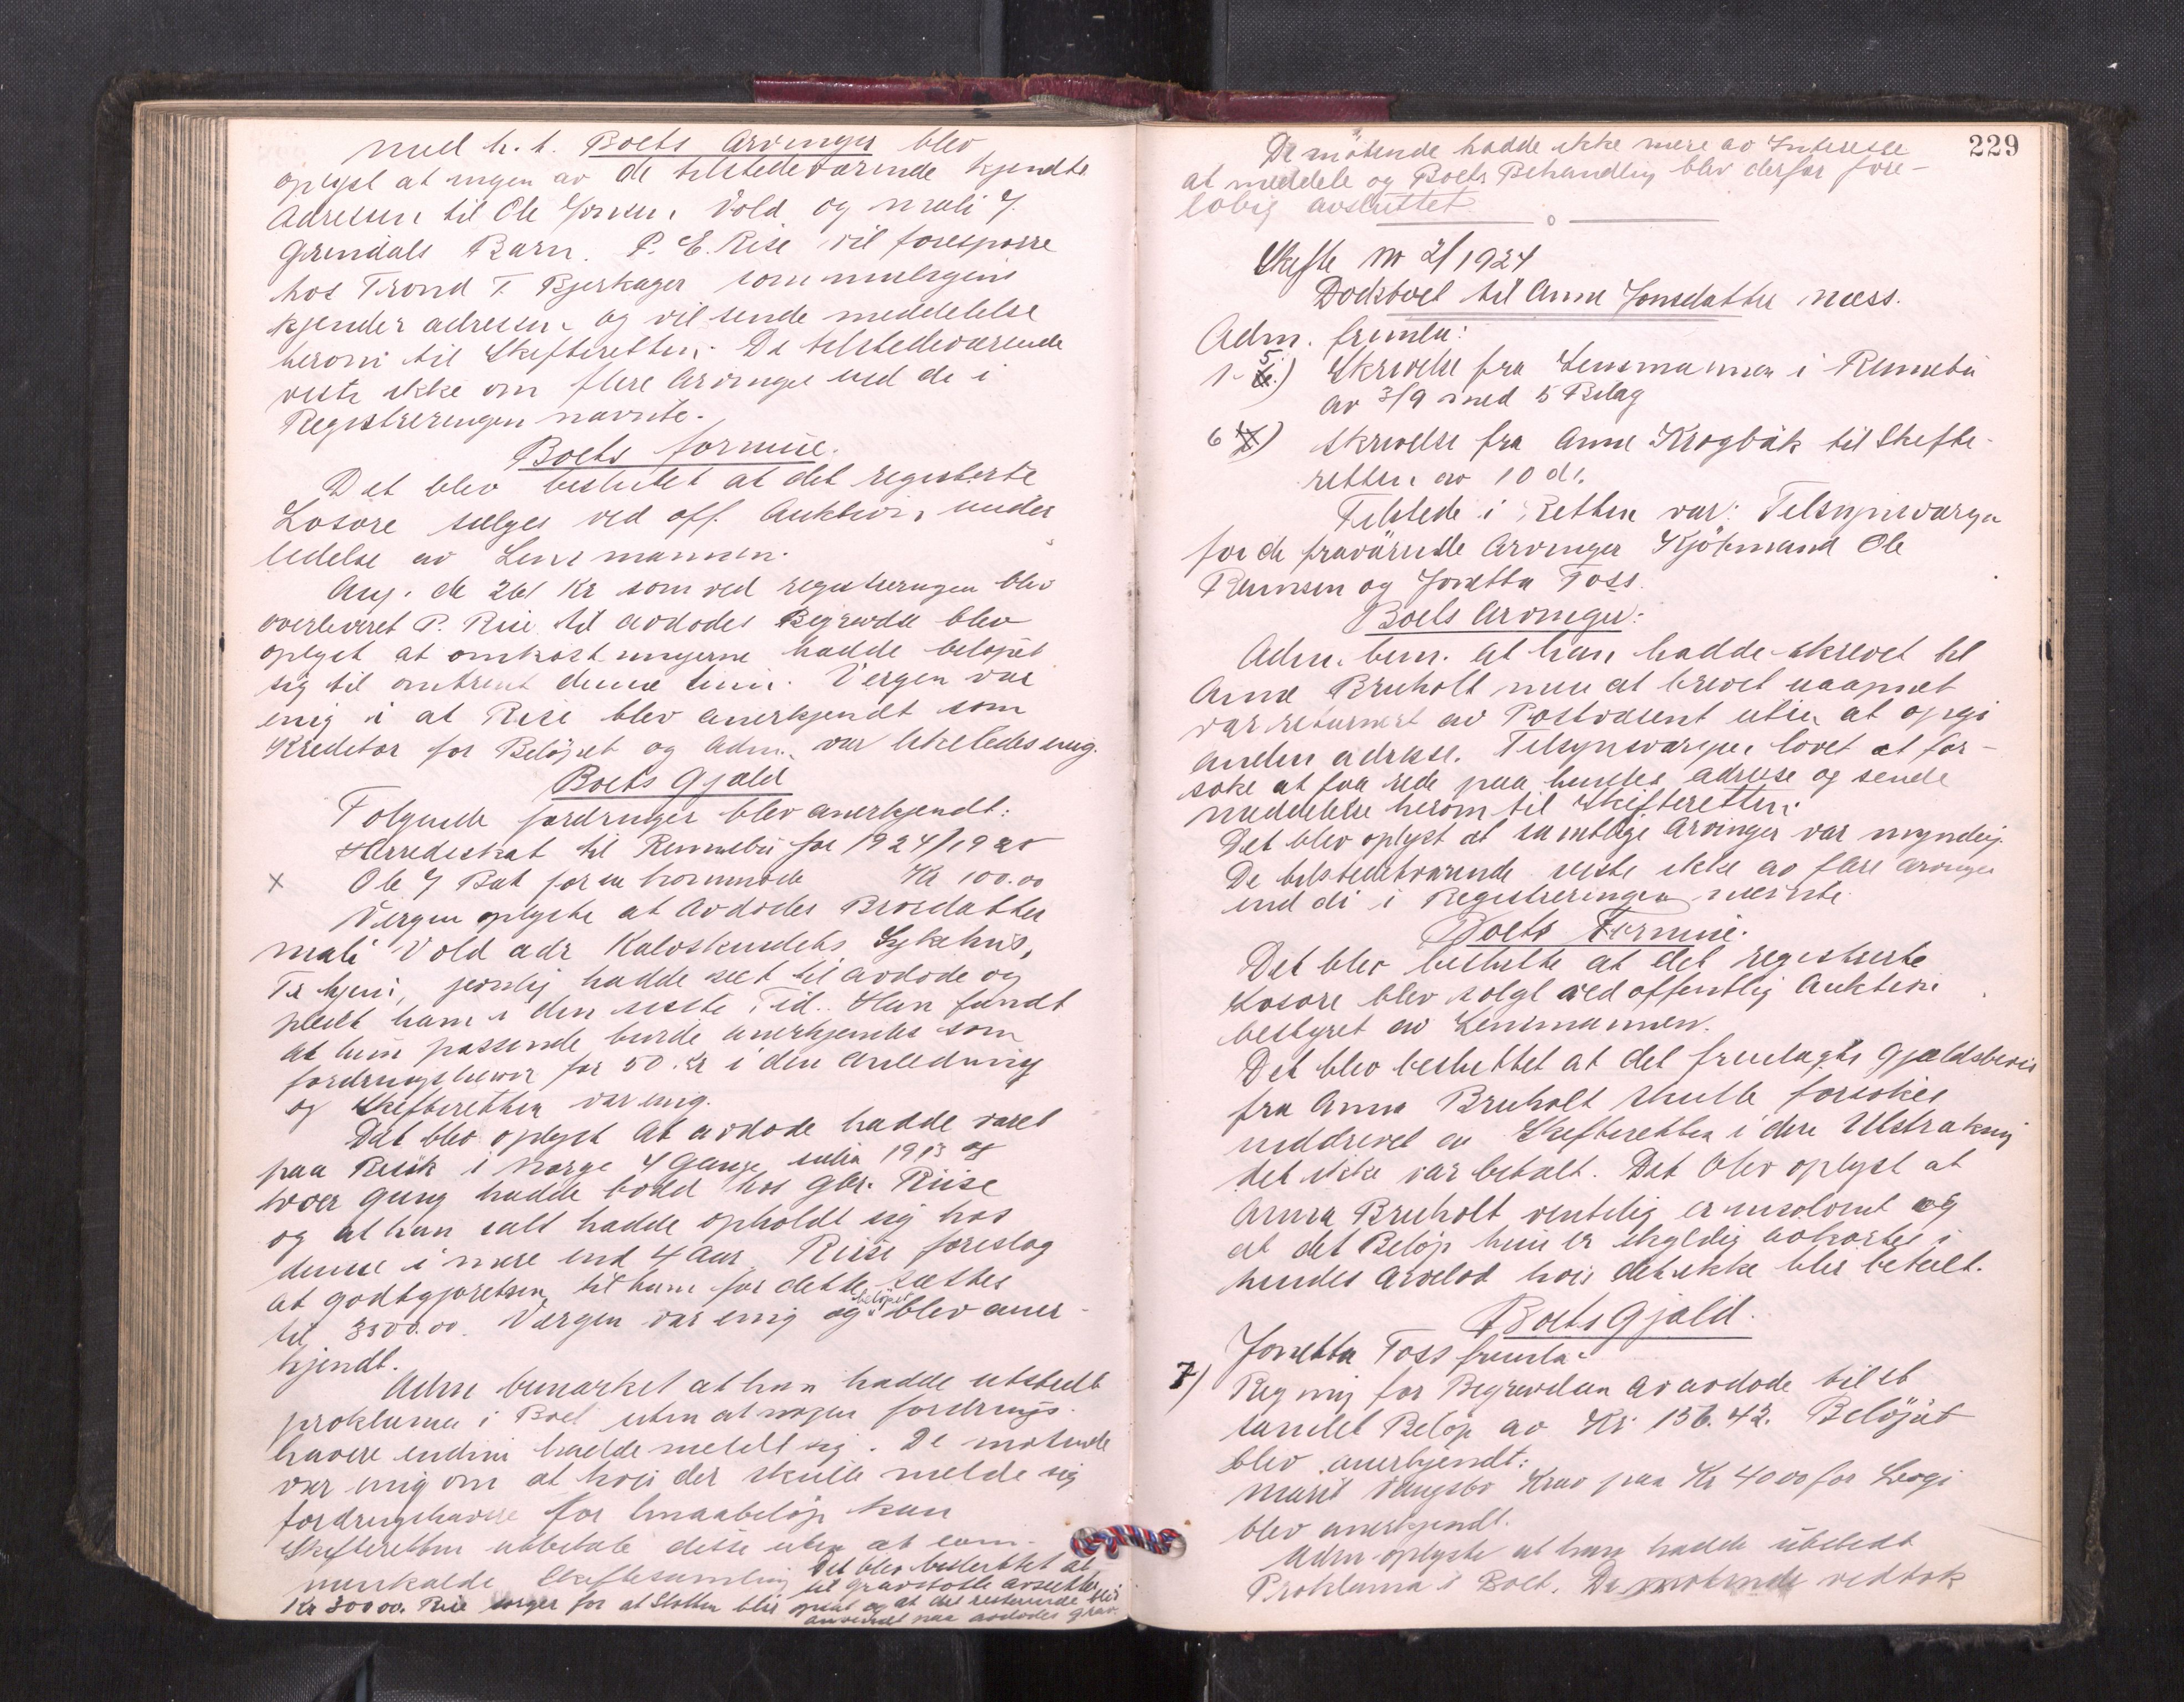 med h. t. Boets Arvinger blev
oplyst at ingen av de tilstedeværende kjendte
Adressen til Ole Jonsen Vold og Mali J.
Grindals Barn. P. E. Rise vil forespørre
hos Trond T. Bjerkager som muligens
kjender adressen og vil sende meddelelse
herom til Skifteretten. De tilstedeværende
viste ikke om flere Arvinger end de i
Registreringen nævnte.
Boets formue.
Det blev besluttet at det registrerte
Løsøre sælges ved off. Auktion under
ledelse av Lensmannen.
Ang. de 261 Kr som ved registreringen blev
overleveret P. Rise til avdødes Begravelse blev
oplyst at omkostningerne hadde beløpet
sig til omtrent denne sum. Vergen var
enig i at Rise blev anerkjendt som
Kreditor for Beløpet og Adm. var likeledes enig.
Boets Gjæld
Følgende fordringer blev anerkjendt:
Herredsskat til Rennebu for 1924/1925
x Ole J Bak for en kommode Kr 100.00
Vergen oplyste at Avdødes Brordatter
Mali Vold adr Kalvskindets Sykehus,
Tr.hjem, jevnlig hadde seet til avdøde og
pleiet ham i den siste Tid. Han fandt
at hun passende burde anerkjendes som
fordringshaver for 50 Kr i den Anledning
og Skifteretten var enig.
Det blev oplyst at avdøde hadde været
paa Besøk i Norge 4 Gange siden 1913 og
hver gang hadde bodd hos gbr. Riise
og at han ialt hadde opholdt sig hos
denne i mere end 4 Aar. Riise foreslog
at godtgjørelsen til ham for dette sættes
til 3500.00. Værgen var enig og beløpet blev aner-
kjendt.
Adm bemærket at han hadde utstedt
proklama i Boet uten at nogen fordrings-
havere endnu hadde meldt sig. De møtende
var enig om at hvis der skulle melde sig
fordringshavere for smaabeløp kan
Skifteretten utbetale disse uten at sam-
menkalde Skiftesamling. Det blev besluttet at
til Gravstøtte avsættes
Kr 300.00. Rise sørger for at Støtten blir opsat og at det resterende blir
anvendt paa avdødes grav.
229
De møtende hadde ikke mere av Interesse
at meddele og Boets Behandling blev derfor fore-
løbig avsluttet.
Skifte nr 2/1924
Dødsboet til Anne Jonsdatter Næss.
Adm. fremla:
1-5) Skrivelse fra Lensmannen i Rennebu
av 3/9 med 5 Bilag
6) Skrivelse fra Anne Krogbäk til Skifte-
retten av 10 ds.
Tilstede i Retten var: Tilsynsværgen
for de fraværende Arvinger Kjøbmand Ole
Ramsem og Jonetta Foss.
Boets Arvinger:
Adm. bem. at han hadde skrevet til
Anna Bruholt men at brevet uaapnet
var returnert av Postvæsent uten at opgi
anden adresse. Tilsynsværgen lovet at for-
søke at faa rede paa hendes adresse og sende
meddelelse herom til Skifteretten.
Det blev oplyst at samtlige Arvinger var myndig.
De tilstedeværende viste ikke av flere arvinger
end de i Registreringen nævnte.
Boets Formue.
Det blev besluttet at det registrerte
Løsøre blev solgt ved offentlig Auktion
bestyret av Lensmannen.
Det blev besluttet at det fremlagte Gjældsbevis
fra Anna Bruholt skulle forsøkes
inddrevet av Skifteretten i den Utstrækning
det ikke var betalt. Det blev oplyst at
Anna Bruholt ventelig er insolvent og
at det Beløp hun er skyldig avkortes i
hendes Arvelod hvis det ikke blir betalt.
Boets Gjæld.
Jonetta Foss fremla:
7) Regning for Begravelsen av avdøde til et
samlet Beløp av Kr. 156.42. Beløpet
blev anerkjendt.
Marit Vangsbo Krav paa Kr 40.00 for Losgi
blev anerkjendt.
Adm oplyste at han hadde utstedt
Proklama i Boet. De møtende vedtok